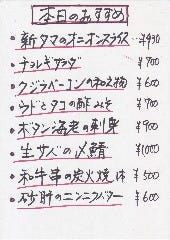 本日のおすすめ
・新タマのオニオンスライス…¥450
・チョレギサラダ ¥700
・クジラベーコンの和え物 ¥600
・ウドとタコの酢みそ ¥700
・ボタン海老の刺身 ¥900
・生サバの〆鯖 ¥1000
・和牛串の炭火焼 1本 ¥500
・砂肝のニンニクバター ¥600